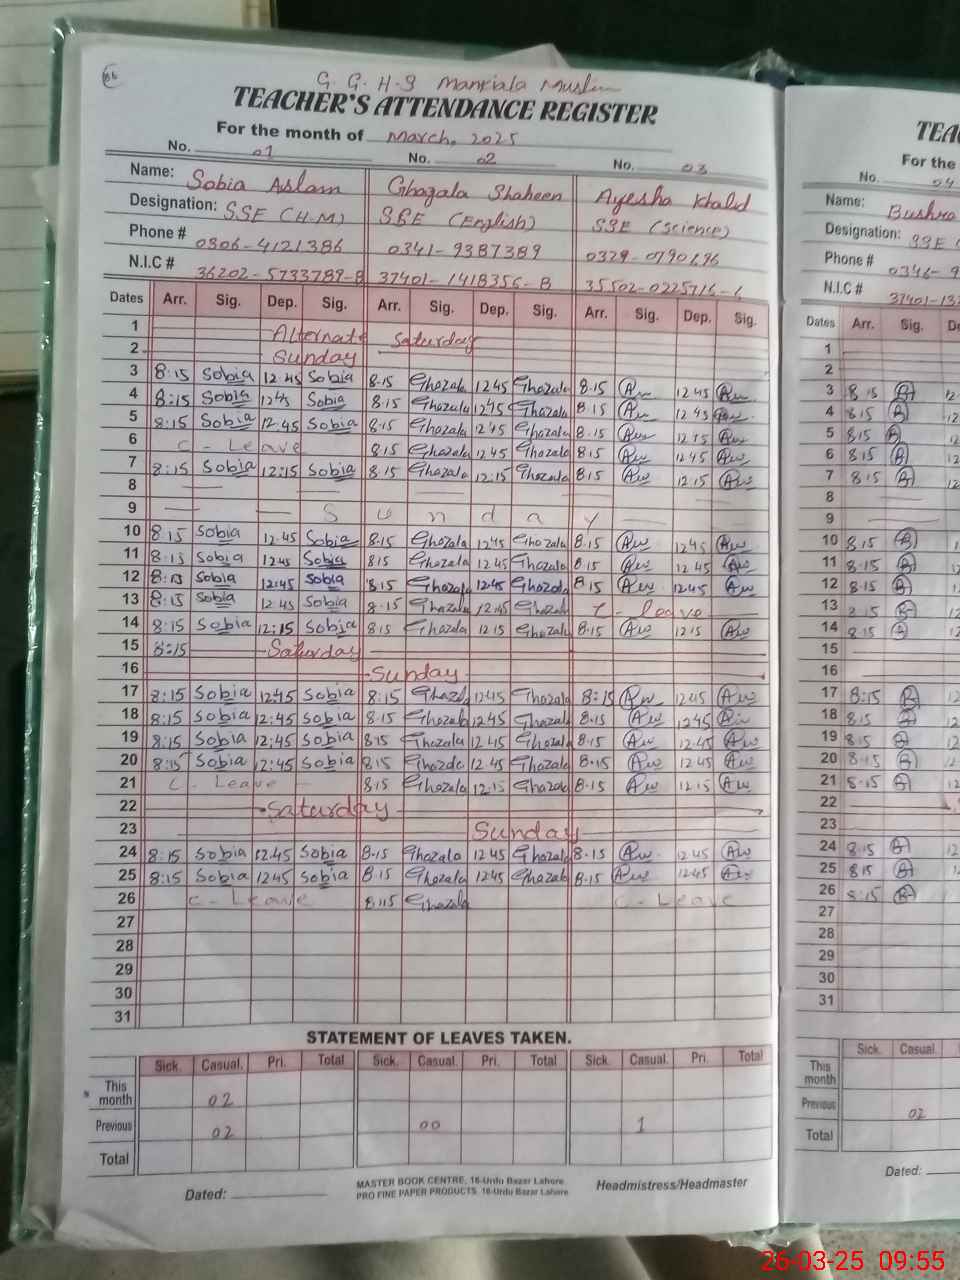 G. G. H. S Mankiala Muslim
TEACHER'S ATTENDANCE REGISTER
For the month of March, 2025
No. 01 No. 02 No. 03
Name: Sobia Aslam Ghazala Shaheen Ayesha Khalid
Designation: SSE (H.M) SSE (English) SSE (Science)
Phone # 0306-4121386 0341-9387389
N.I.C #
Dates Arr. Sig. Dep. Sig. Arr. Sig. Dep. Sig. Arr. Sig. Dep. Sig.
1 Alternate Saturday
2 Sunday
3 8:15 Sobia 12:45 Sobia 8.15 Ghazala 12 45 Ghazala 8.15 12 45
4 8:15 Sobia 12 45 Sobia 8.15 Ghazala 12 45 Ghazala 8.15 12 45
5 8:15 Sobia 12.45 Sobia 8.15 Ghazala 12 45 Ghazala 8.15 12 45
6 C - Leave 8.15 Ghazala 12.45 Ghazala 8.15 12 45
7 8:15 Sobia 12:15 Sobia 8.15 Ghazala 12:15 Ghazala 8.15 12 15
8
9 S u n d a y
10 8:15 Sobia 12.45 Sobia 8.15 Ghazala 12 45 Ghazala 8.15 12 45
11 8:15 Sobia 12 45 Sobia 8 15 Ghazala 12 45 Ghazala 8 15 12 45
12 8:15 Sobia 12:45 Sobia 8 15 Ghazala 12.45 Ghazala 8 15 12.45
13 8:15 Sobia 12 45 Sobia 8.15 Ghazala 12.45 Ghazala C - leave
14 8:15 Sobia 12:15 Sobia 8 15 Ghazala 12 15 Ghazala 8.15 12 15
15 8:15 Saturday
16 Sunday
17 8:15 Sobia 12:45 Sobia 8:15 Ghazala 12 45 Ghazala 8:15 12 45
18 8:15 Sobia 12:45 Sobia 8.15 Ghazala 12 45 Ghazala 8.15 12 45
19 8:15 Sobia 12:45 Sobia 8 15 Ghazala 12 45 Ghazala 8.15 12.45
20 8:15 Sobia 12:45 Sobia 8.15 Ghazala 12 45 Ghazala 8.15 12 45
21 C - Leave 8.15 Ghazala 12:15 Ghazala 8.15 12 15
22 Saturday
23 Sunday
24 8:15 Sobia 12.45 Sobia 8.15 Ghazala 12 45 Ghazala 8.15 12.45
25 8:15 Sobia 12 45 Sobia 8.15 Ghazala 12 45 Ghazala 8.15 12 45
26 C - Leave 8:15 Ghazala C - Leave
27
28
29
30
31
STATEMENT OF LEAVES TAKEN.
Sick. Casual. Pri. Total Sick. Casual. Pri. Total Sick. Casual. Pri. Total
This month 02
Previous 02 00 1
Total
Dated:
MASTER BOOK CENTRE, 16-Urdu Bazar Lahore
PRO FINE PAPER PRODUCTS, 16-Urdu Bazar Lahore
Headmistress/Headmaster
For the
No. 04
Name: Bushra
Designation: SSE
Phone #
N.I.C #
Dates Arr. Sig.
1
2
3 8 15
4 8 15
5 8 15
6 8 15
7 8 15
8
9
10 8.15
11 8.15
12 8.15
13
14 8.15
15
16
17 8:15
18 8.15
19 8.15
20 8.15
21 8.15
22
23
24 8.15
25 8.15
26 8:15
27
28
29
30
31
Sick. Casual
This month
Previous 02
Total
Dated:
26-03-25 09:55